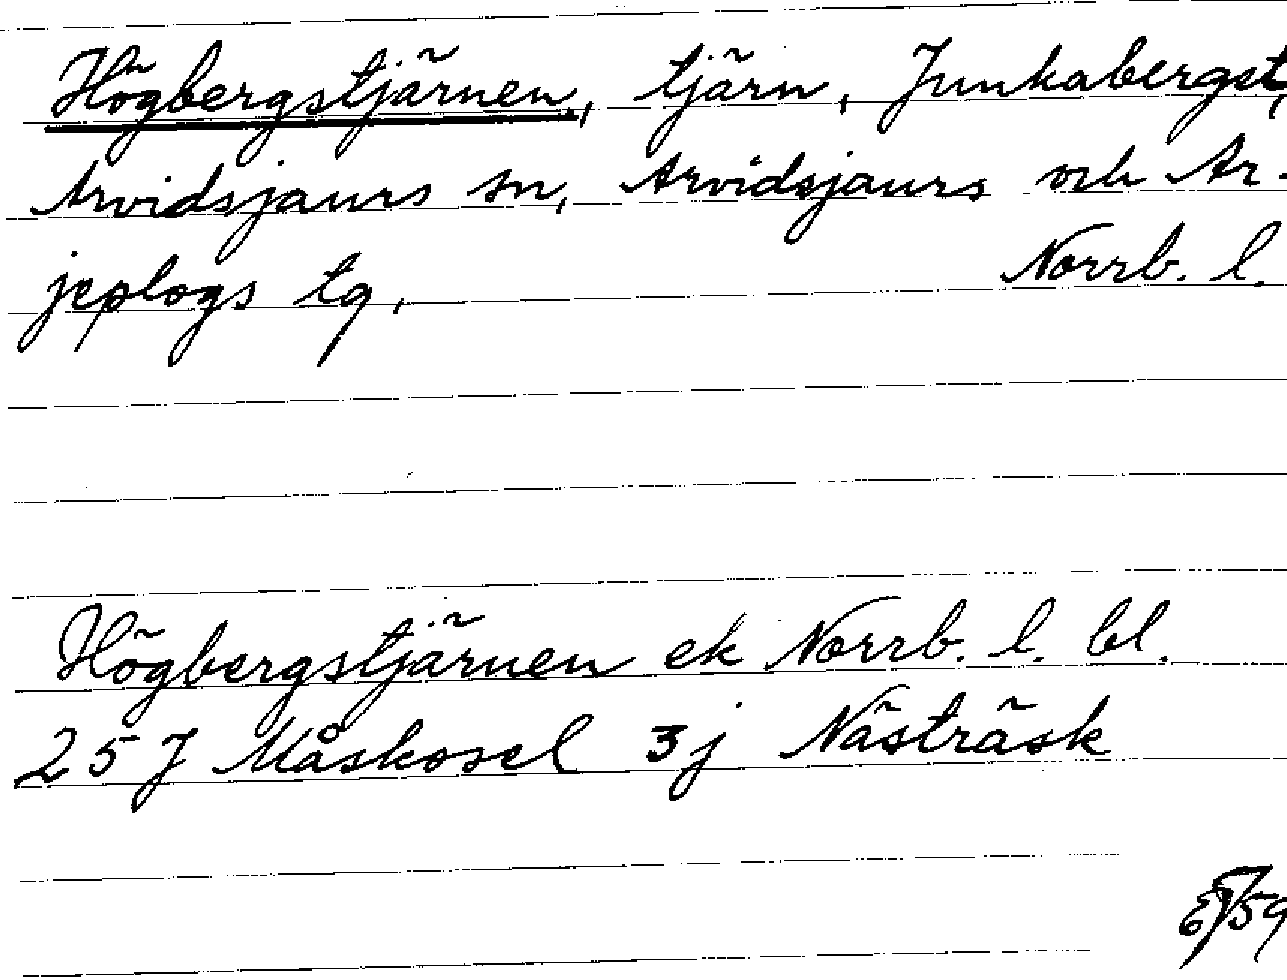 Högbergstjärnen, tjärn, Junkaberget,
Arvidsjaurs sn, Arvidsjaurs och Ar-
jeplogs tg, Norrb. l.
Högbergstjärnen ek Norrb. l. bl.
25 J Måskosel 3j Nästräsk